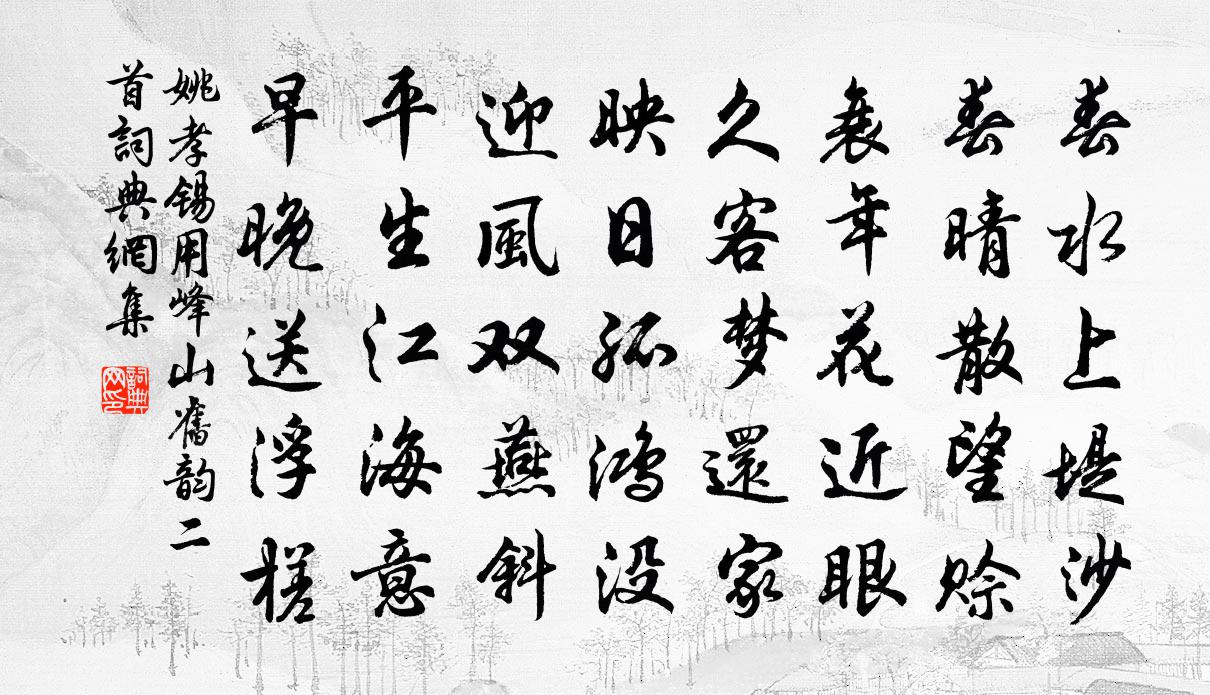 春水上堤沙
春晴散望赊
衰年花近眼
久客梦還家
映日孤鸿没
迎風双燕斜
平生江海意
早晚送浮槎
姚孝锡用峰山舊韵二
首詞典網集
詞典
网印